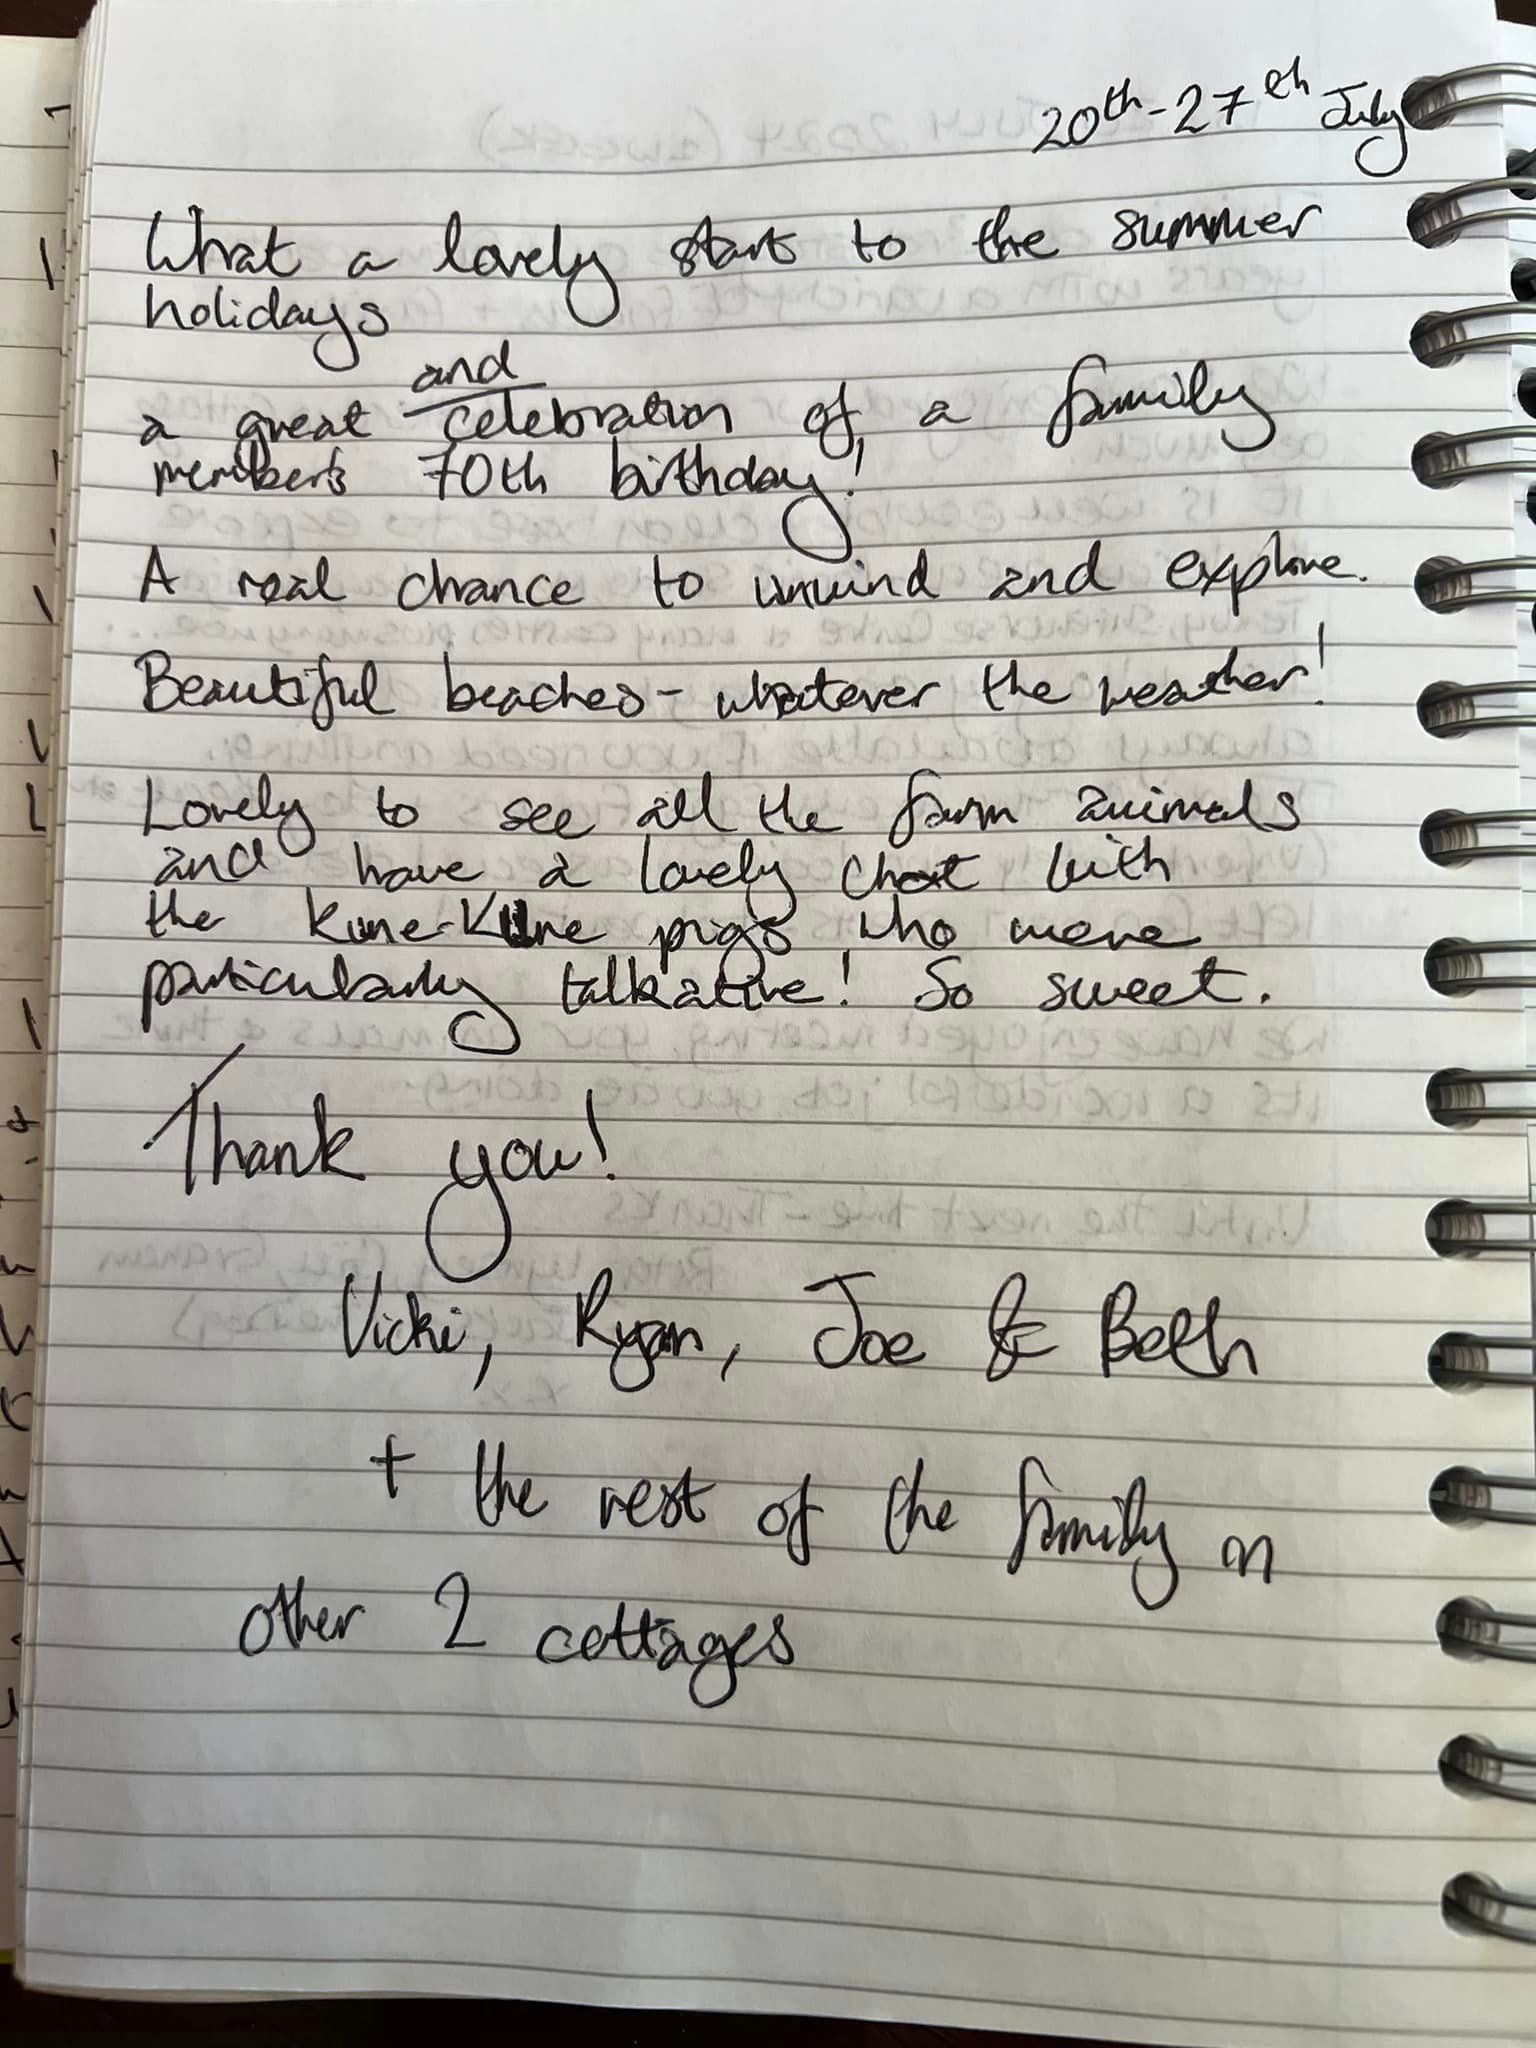 20th - 27th July
What a lovely start to the summer
holidays
and
a great celebration of a family
member's 70th birthday!
A real chance to unwind and explore.
Beautiful beaches - whatever the weather!
Lovely to see all the farm animals
and have a lovely chat with
the kune-kune pigs who were
particularly talkative! So sweet.
Thank you!
Vicki, Ryan, Joe & Beth
+ the rest of the family in
other 2 cottages